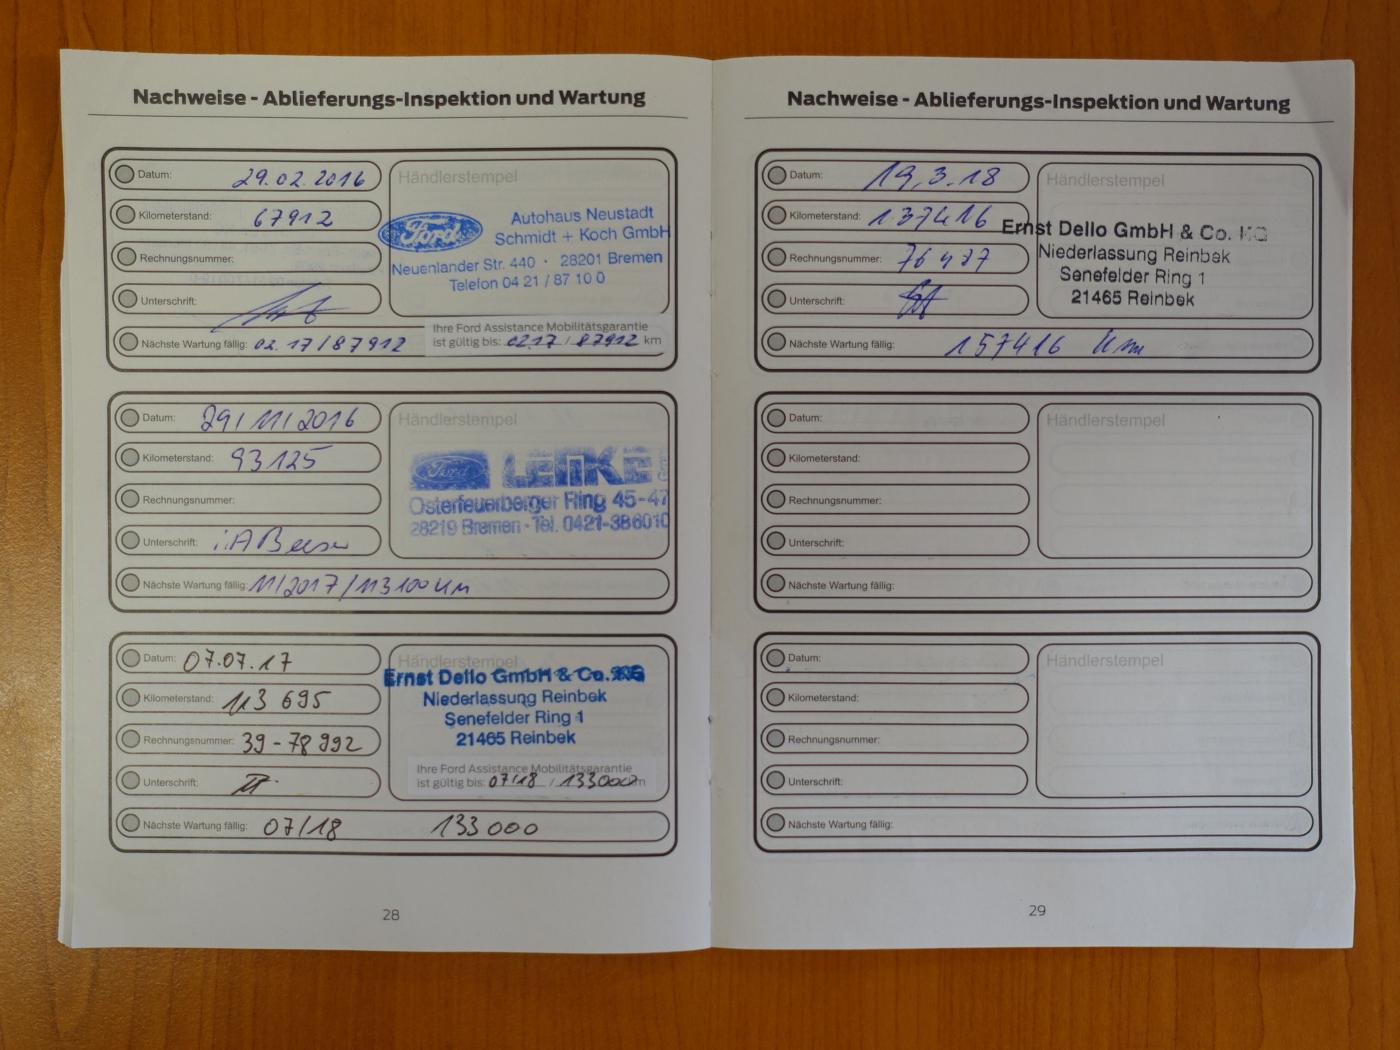 Nachweise - Ablieferungs-Inspektion und Wartung
Datum: 29.02.2016
Kilometerstand: 67912
Rechnungsnummer:
Unterschrift:
Nächste Wartung fällig: 02.17/87912
Händlerstempel
Ford
Autohaus Neustadt
Schmidt + Koch GmbH
Neuenlander Str. 440 · 28201 Bremen
Telefon 04 21 / 87 10 0
Ihre Ford Assistance Mobilitätsgarantie
ist gültig bis: 02.17 / 87912 km
Datum: 29/11/2016
Kilometerstand: 93125
Rechnungsnummer:
Unterschrift: i.A
Nächste Wartung fällig: 11/2017/113100 km
Händlerstempel
Ford
Osterfeuerberger Ring 45-47
28219 Bremen - Tel. 0421-386010
Datum: 07.07.17
Kilometerstand: 113 695
Rechnungsnummer: 39-78992
Unterschrift:
Nächste Wartung fällig: 07/18 133 000
Händlerstempel
Ernst Dello GmbH & Co. KG
Niederlassung Reinbek
Senefelder Ring 1
21465 Reinbek
Ihre Ford Assistance Mobilitätsgarantie
ist gültig bis: 07/18 / 133000 km
28
Nachweise - Ablieferungs-Inspektion und Wartung
Datum: 19.3.18
Kilometerstand: 137416
Rechnungsnummer:
Unterschrift:
Nächste Wartung fällig: 157416 km
Händlerstempel
Ernst Dello GmbH & Co. KG
Niederlassung Reinbek
Senefelder Ring 1
21465 Reinbek
Datum:
Kilometerstand:
Rechnungsnummer:
Unterschrift:
Nächste Wartung fällig:
Händlerstempel
Datum:
Kilometerstand:
Rechnungsnummer:
Unterschrift:
Nächste Wartung fällig:
Händlerstempel
29